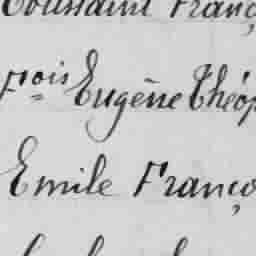 Toussaint Franç
çois Eugène Théop
Emile Franço